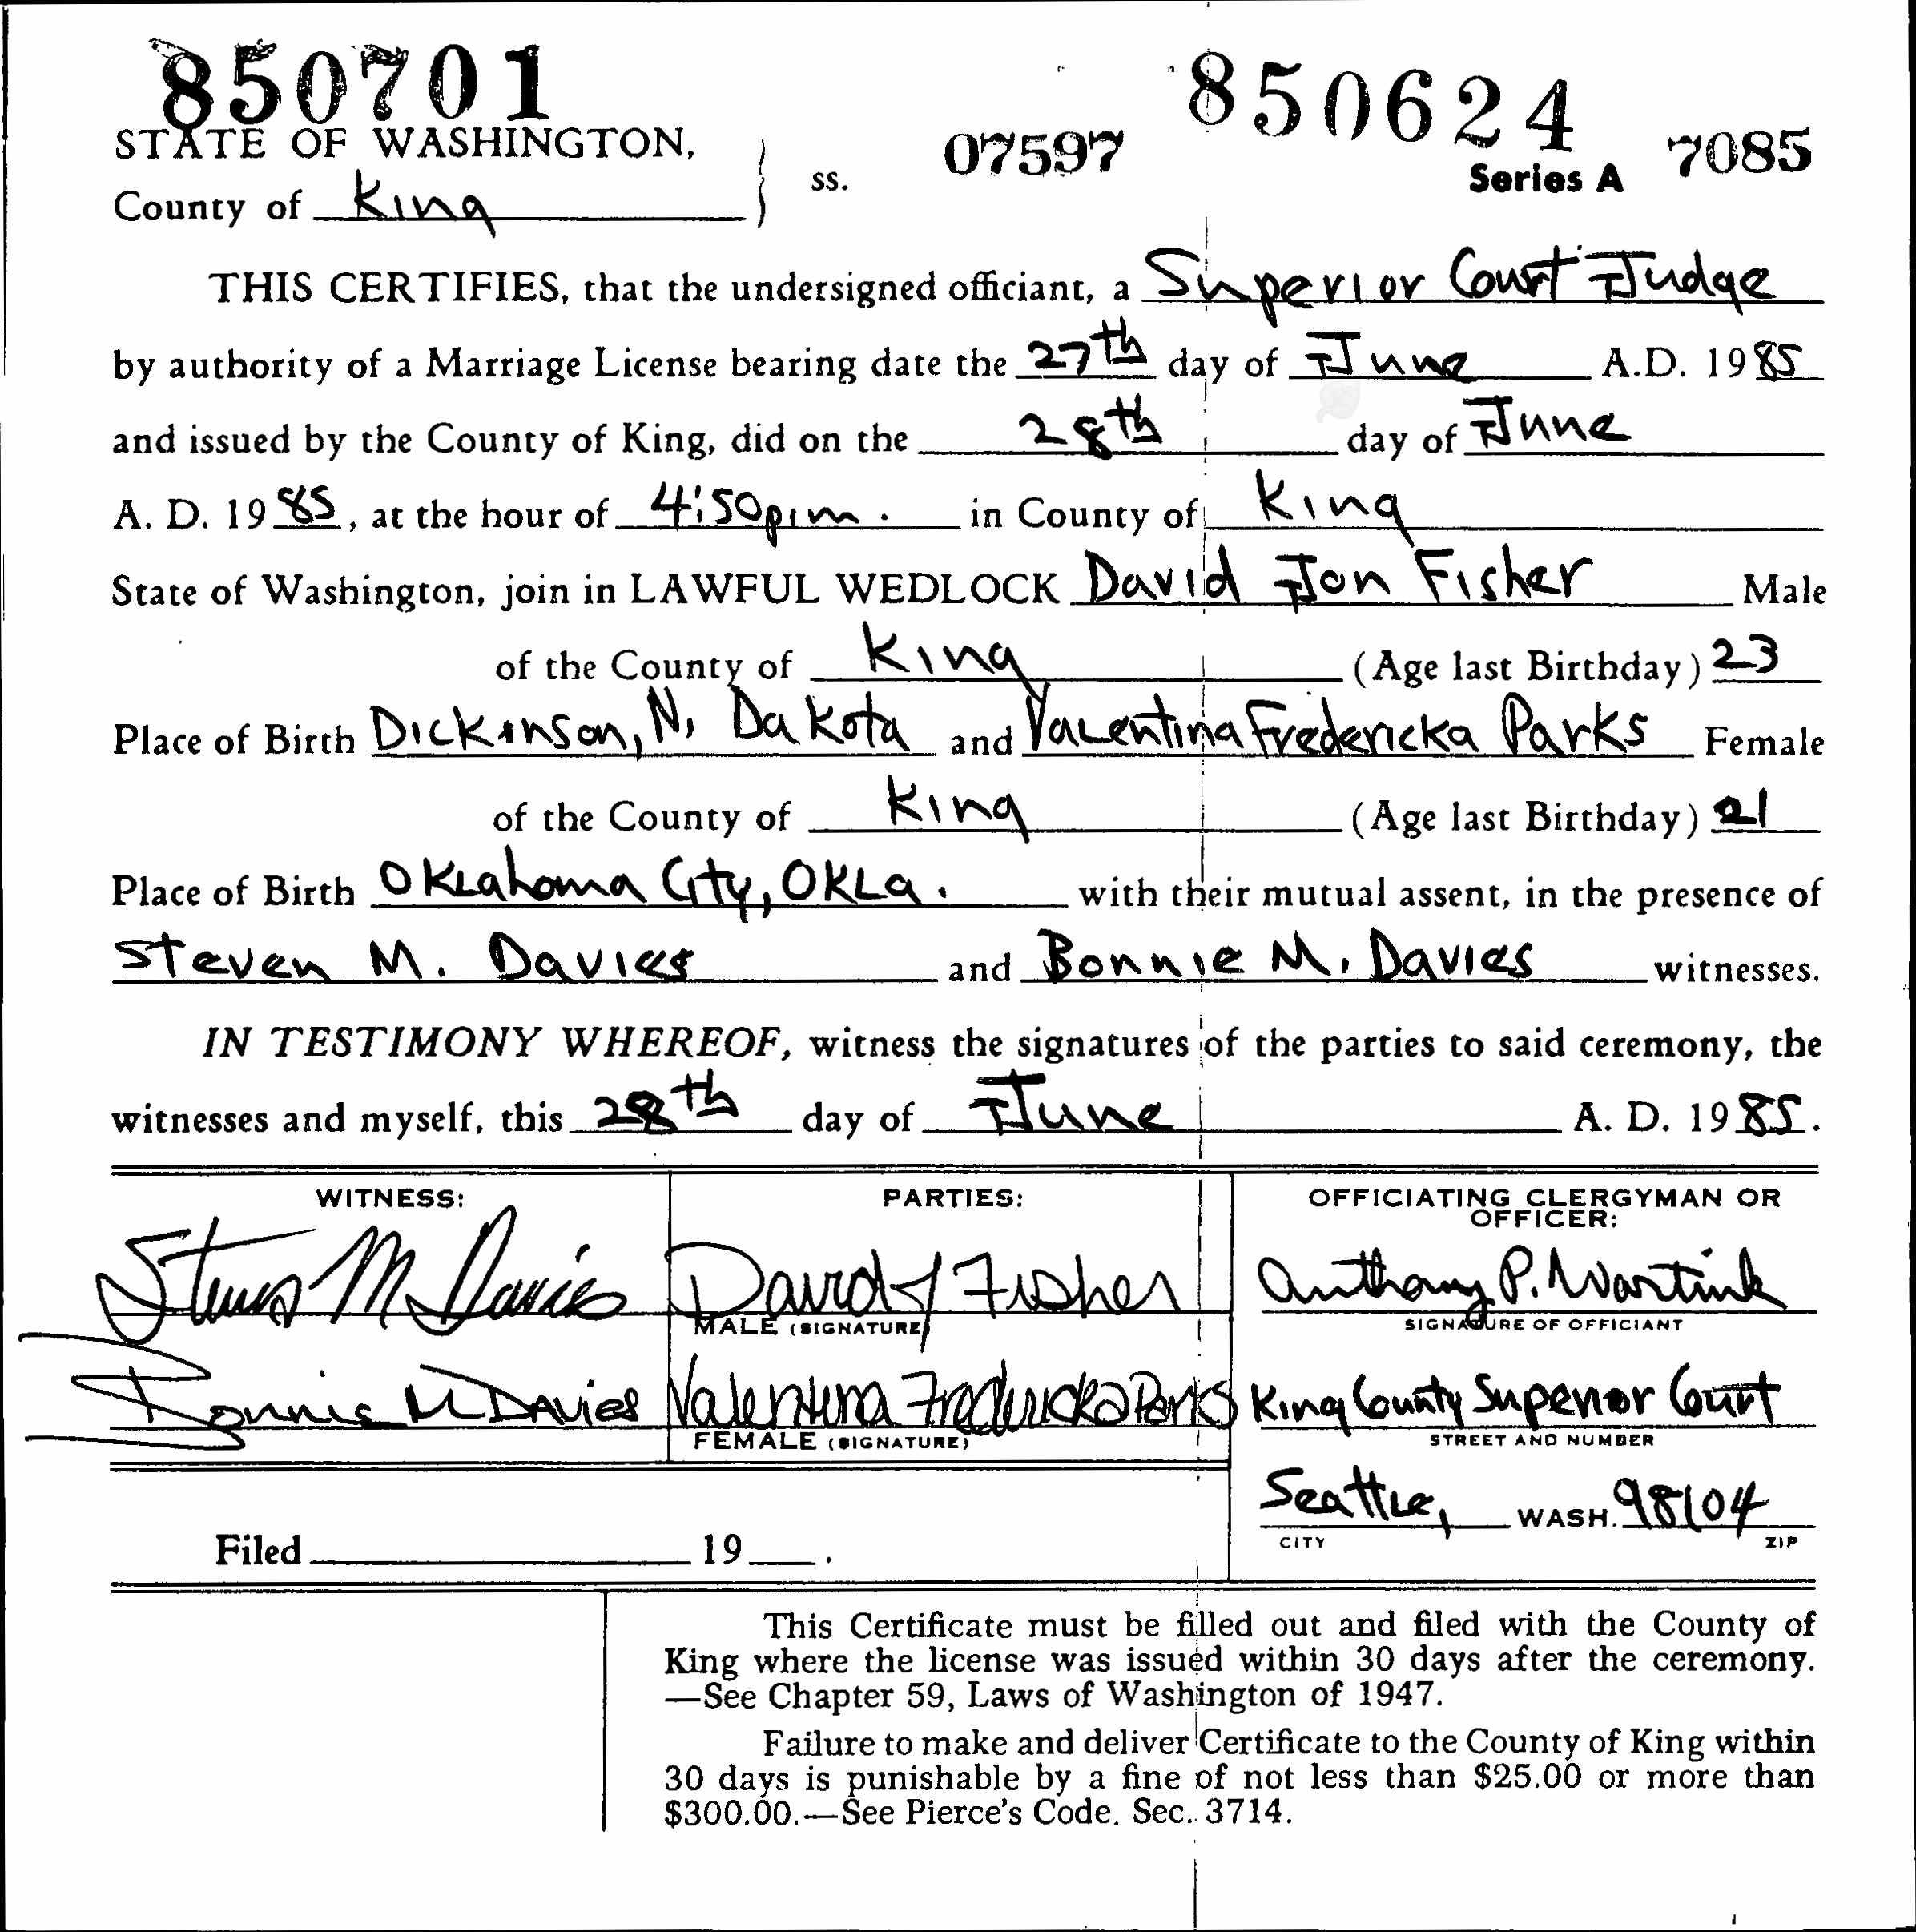 850701
850624
STATE OF WASHINGTON,
07597
Series A 7085
County of King ss.
THIS CERTIFIES, that the undersigned officiant, a Superior Court Judge
by authority of a Marriage License bearing date the 27th day of June A.D. 1985
and issued by the County of King, did on the 28th day of June
A. D. 1985, at the hour of 4:50 p.m. in County of King
State of Washington, join in LAWFUL WEDLOCK David Jon Fisher Male
of the County of King (Age last Birthday) 23
Place of Birth Dickinson, N. Dakota and Valentina Fredericka Parks Female
of the County of King (Age last Birthday) 21
Place of Birth Oklahoma City, Okla. with their mutual assent, in the presence of
Steven M. Davies and Bonnie M. Davies witnesses.
IN TESTIMONY WHEREOF, witness the signatures of the parties to said ceremony, the
witnesses and myself, this 28th day of June A. D. 1985.
WITNESS: PARTIES: OFFICIATING CLERGYMAN OR
OFFICER:
Steven M Davies David J Fisher Anthony P. Wartnik
MALE (SIGNATURE) SIGNATURE OF OFFICIANT
Bonnie M Davies Valentina Fredericka Parks King County Superior Court
FEMALE (SIGNATURE) STREET AND NUMBER
Seattle, WASH. 98104
CITY ZIP
Filed 19 .
This Certificate must be filled out and filed with the County of
King where the license was issued within 30 days after the ceremony.
—See Chapter 59, Laws of Washington of 1947.
Failure to make and deliver Certificate to the County of King within
30 days is punishable by a fine of not less than $25.00 or more than
$300.00.—See Pierce's Code. Sec. 3714.